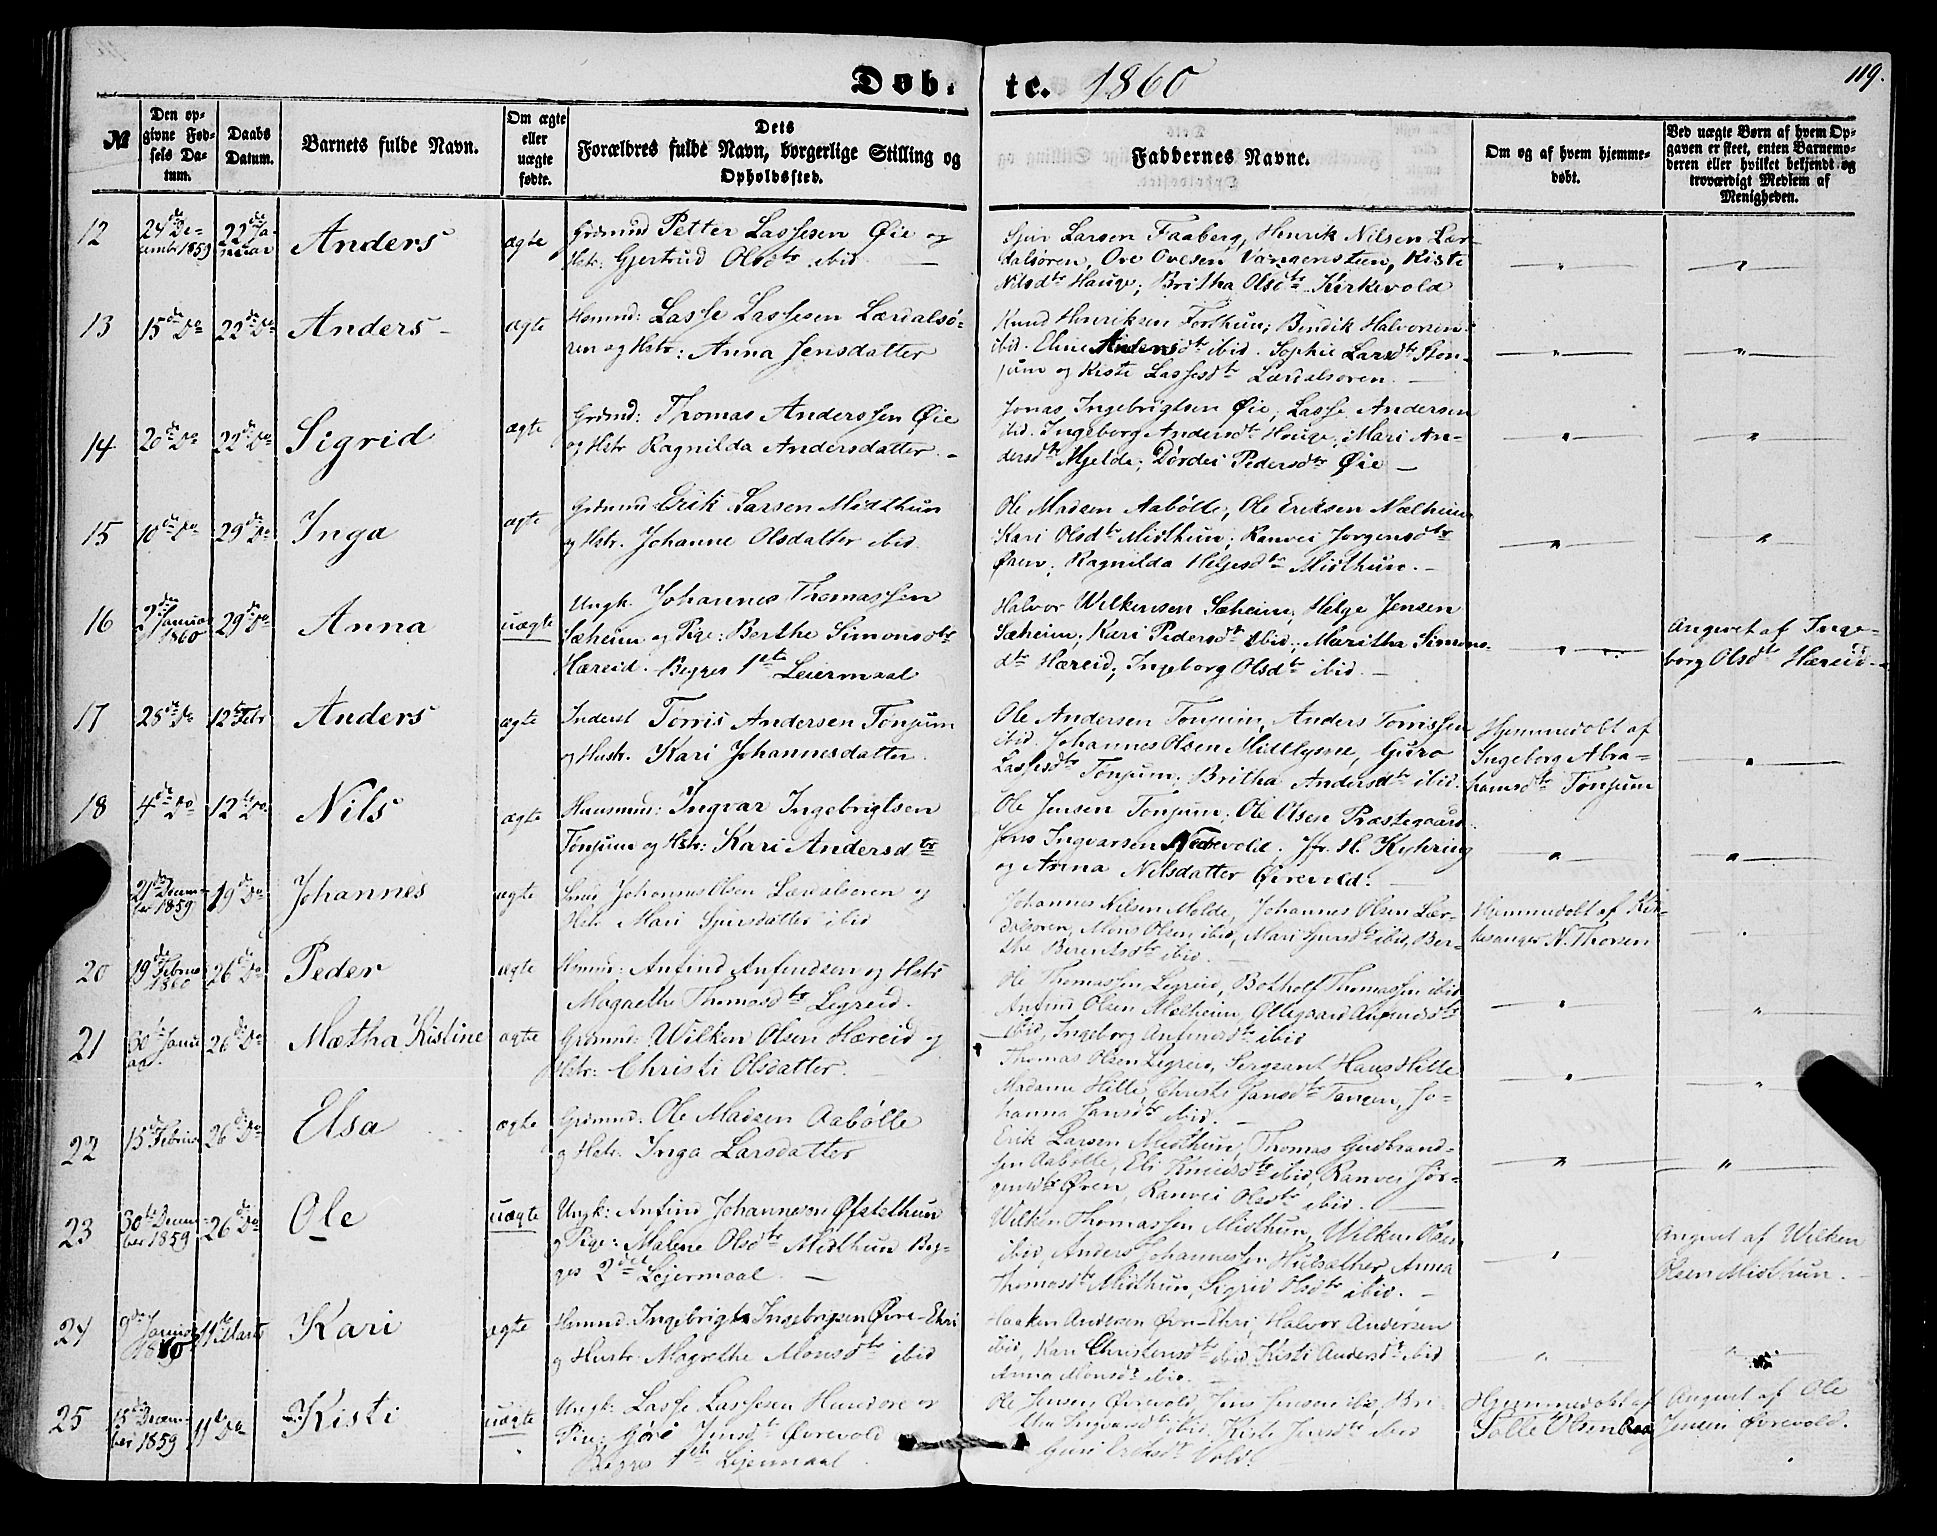 Døb. te. 1860
119.
№
Den op-
givne Fød-
sels Da-
tum.
Daabs
Datum.
Barnets fulde Navn.
Om ægte
eller
uægte
fødte.
Dets
Forældres fulde Navn, borgerlige Stilling og
Opholdssted.
Faddernes Navne.
Om og af hvem hjemme-
døbt.
Ved uægte Børn af hvem Op-
gaven er skeet, enten Barnemo-
deren eller hvilket bekjendt og
troværdigt Medlem af
Menigheden.
12
24de De-
cembr 1859
22de Ja-
nuar
Anders
ægte
Grdmnd Petter Lassesen Øie og
Hstr: Gjertrud Olsdtr ibid
Sjur Larsen Faaberg, Henrik Nilsen Lær-
dalsøren, Ove Ovesen Vangensteen, Kisti
Nilsdtr Hauge; Britha Olsdtr Kirkevold
13
15de Do
22de Do
Anders
ægte
Hsmnd: Lasse Lassesen Lærdalsø-
ren og Hstr: Anna Jensdatter
Knud Henriksen Forthun; Bendik Halvorsen
ibid. Eline Andersdtr ibid. Sophie Larsdtr Støn-
jum og Kisti Lassesdtr Lærdalsøren.
14
20de Do
22de Do
Sigrid
ægte
Grdmnd: Thomas Anderssen Øie
og Hstr Ragnilda Andersdatter.
Jonas Ingebrigtsen Øie, Lasse Andersen
ibid. Ingeborg Andersdtr Houge, Mari An-
dersdtr Mjelde; Dørdei Pedersdtr Øie
15
10de Do
29de Do
Inga
ægte
Grdmnd: Erik Larsen Midthun
og Hstr. Johanne Olsdatter ibid
Ole Madsen Aabølle, Ole Eriksen Mælheim
Kari Olsdtr Midthun; Ranvei Jørgensdtr
Øren, Ragnilda Helgesdtr Midthun.
16
Januar
1860
29de Do
Anna
uægte
Ungk. Johannes Thomassen
Sæheim og Pige: Berthe Simonsdtr
Hæreid. Begges 1ste Leiermaal
Halvor Wilkensen Sæheim, Helge Jensen
Sæheim; Kari Pedersdtr ibid.; Maritha Simons-
dtr Hæreid; Ingeborg Olsdtr ibid.
Angivet af Inge-
borg Olsdtr Hæreid
17
25de Do
12te Febr
Anders
ægte
Inderst Torris Andersen Tonjum
og Hustr. Kari Johannesdatter.
Ole Andersen Tonjum, Anders Torrissen
ibid. Johannes Olsen Midtlysne, Guro
Lassesdtr Tonjum; Britha Andersdtr ibid.
Hjemmedøbt af
Ingeborg Abra-
hamsdtr Tonjum
18
4de Do
12te Do
Nils
ægte
Huusmnd: Ingvar Ingebrigtsen
Tonjum og Hstr: Kari Andersdtr
Ole Jensen Tonjum; Ole Olsen Præstegaard
Jens Ingvarsen Nedrevold. Jfr. H. Kyhring
og Anna Nilsdatter Øvrevold.
21de Decem-
ber 1859
19de Do
Johannes
ægte
Johannes Olsen Lærdalsøren og
Hstr Mari Sjursdatter ibid
Johannes Nilsen Molde, Johannes Olsen Lær-
dalsøren, Mons Olsen ibid, Mari Sjursdtr ibid, Ber-
the Berentsdtr ibid.
Hjemmedøbt af Kir-
kesanger N. Thorsen
20
19de Febru
1860
26de Do
Peder
ægte
Hsmnd: Anfind Anfindsen og Hstr
Magrethe Thomasdtr Legreid.
Ole Thomassen Legreid, Botholf Thomassen ibid
Anfind Olsen Mælheim, Ollegaard Anfindsdtr
ibid, Ingeborg Anfindsdtr ibid
21
30te Janu
ar.
26de Do
Mætha Kistine
ægte
Grdmnd: Wilken Olsen Hæreid og
Hstr: Christi Olsdatter.
Thomas Olsen Legreid, Sergeant Hans Hille
Madame Hille, Christi Jansdtr Tangen, Jo-
hanna Jansdtr ibid.
22
15de Februar
26de Do
Elsa
ægte
Grdmnd: Ole Madsen Aabølle
og Hstr. Inga Larsdatter
Erik Larsen Midthun, Thomas Gudbrand-
sen Aabølle, Eli Knudsdtr ibid, Ranvei Jør-
gensdtr Øren, Ranvei Olsdtr ibid.
23
30te Decem-
ber 1859
26de Do
Ole
uægte
Ungk: Anfind Johannesen Øfstethun
og Pige: Malene Olsdtr Midthun Beg-
ges 2det Leiermaal.
Wilken Thomassen Midthun, Wilken Olsen
ibid, Anders Johannessen Anna
Thomasdtr Midthun, Sigrid Olsdtr ibid.
Angivet af Wilken
Olsen Midthun.
24
9de Januar
1860
11te Marts
Kari
ægte
Hsmnd. Ingebrigt Ingebrigtsen Øvre-Ehri
og Hustr: Magrethe Monsdtr ibid
Haaken Andersen Øvre-Ehri, Halvor Andersen
ibid, Kari Christensdtr ibid, Kisti Andersdtr ibid
Anna Monsdtr ibid.
25
15de Decem-
ber 1859
11te Do
Kisti
uægte
Ungk: Lasse Lassesen Hundere og
Pige: Jensdtr Øvrevold
Begges 1ste Leiermaal
Ole Jensen Øvrevold, Jens Jensen ibid, Bri-
tha Ingvarsdtr ibid. Kisti Jensdtr ibid
Guri Eriksdtr Vold.
Hjemmedøbt af
Olsen
Angivet af Ole
Jensen Øvrevold.